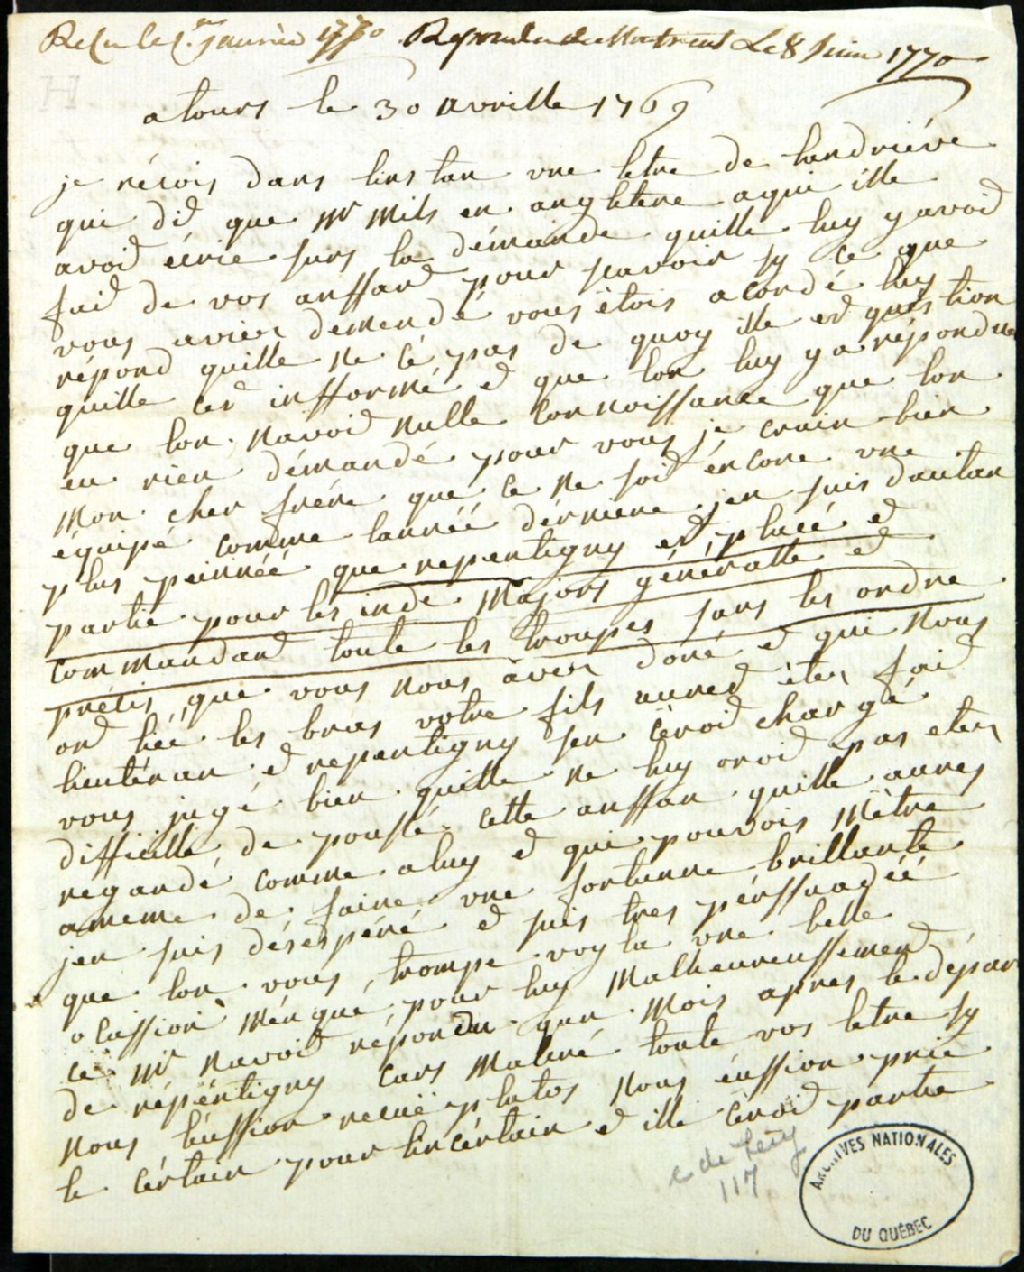 Recu le 1.er janvier 1770 Repondu de Montreal Le 8 Juin 1770
a tours le 30 avrille 1769
je récois dans lins tan une letre de landriéve
qui did que Mr Mils en angletere a qui ille
avoid écrie surs la démande quille luy y avoid
faid de vos anffand pour scavoir sy ce que
vous aviex demendé vous étois acordé luy
répond quille ne cé pas de quoy ille est question
quille cet infformé et que lon luy y a répondue
que lon navoid nulle connoissance que lon
eu rien démandé pour vous je crain bien
mon cher frére que ce ne soid encore une
équipé comme lannéé dérniere jen suis dautan
plus peinnéé que repentigny est placé et
partie pour les inde Majors génêralle et
commandand toute les troupes sans les ordre
précis que vous nous avéx doné et qui nous
ond liée les bras votre fils aured étéx faid
lieuténan et repentigny sen céroid chargé
vous jugé bien quille ne luy oroid pas etéx
difficille de poussé cette anffan quille aures
regardé comme a luy et qui pouvois mêtre
a meme de faire une fortunne brillante
jen suis désespéré et suis tres pérssuadéé
que lon vous trompe voyla une belle
ocassion ménqué pour luy malheureussemend
ce Mr navoid répondu quun mois apres le dépar
de répéntigny cars maluré toute vos letre sy
nous lussion recue plutos nous éussion prie
le cértain pour lincértain et ille céroid partie
c de Lery
117
ARCHIVES NATIONALES
DU QUÉBEC